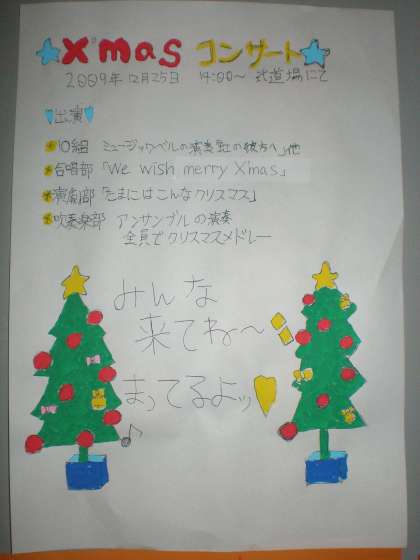 X'mas コンサート
2009年12月25日 14:00〜 武道場にて
出演
10組 ミュージックベルの演奏「虹の彼方へ」他
合唱部「We wish merry X'mas」
演劇部「たまにはこんなクリスマス」
吹奏楽部 アンサンブルの演奏
全員でクリスマスメドレー
みんな
来てね〜
まってるよッ